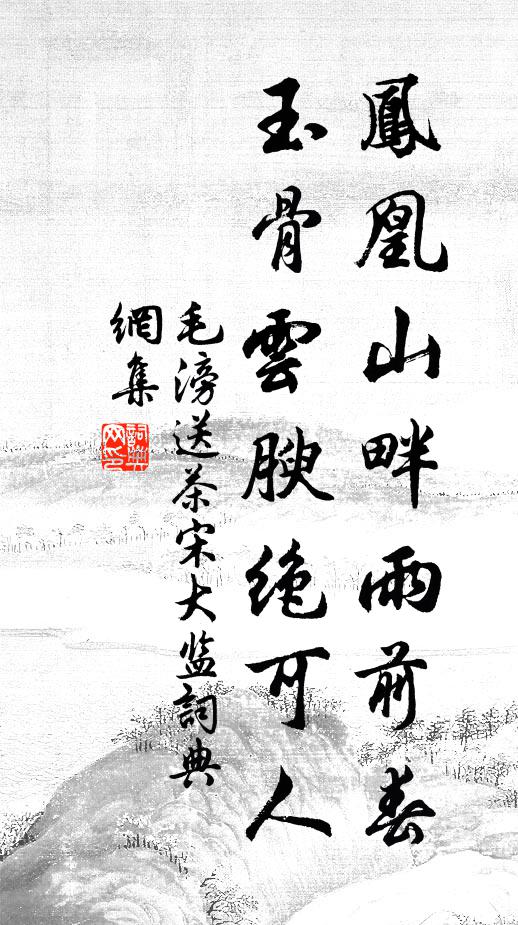 鳳凰山畔雨前春
玉骨雲腴絶可人
毛滂送茶宋大监詞典
網集